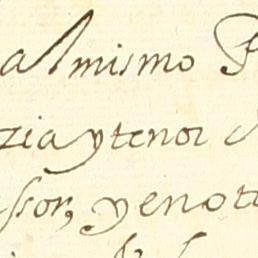 almismo P
zia ytenor d
ssor, yenott